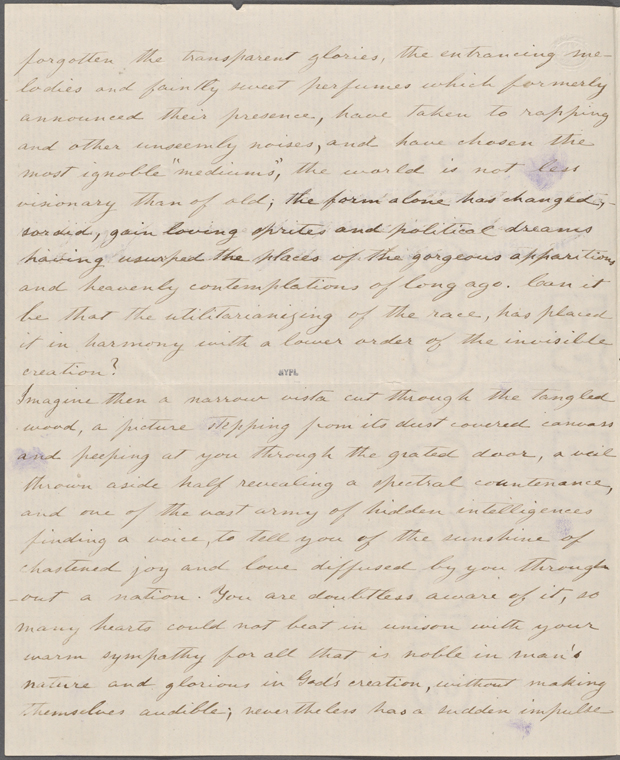 forgotten the transparent glories, the entrancing me-
lodies and faintly sweet perfumes which formerly
announced their presence, have taken to rapping
and other unseemly noises, and have chosen the
most ignoble "mediums", the world is not less
visionary than of old; the form alone has changed,-
sordid, gain loving sprites and political dreams
having usurped the places of the gorgeous apparitions
and heavenly contemplations of long ago. Can it
be that the utilitarianizing of the race, has placed
it in harmony with a lower order of the invisible
creation?
NYPL
Imagine then a narrow vista cut through the tangled
wood, a picture stepping from its dust covered canvass
and peeping at you through the grated door, a veil
thrown aside half revealing a spectral countenance,
and one of the vast army of hidden intelligences
finding a voice, to tell you of the sunshine of
chastened joy and love diffused by you through
-out a nation. You are doubtless aware of it, so
many hearts could not beat in unison with your
warm sympathy for all that is noble in man's
nature and glorious in God's creation, without making
themselves audible; nevertheless has a sudden impulse